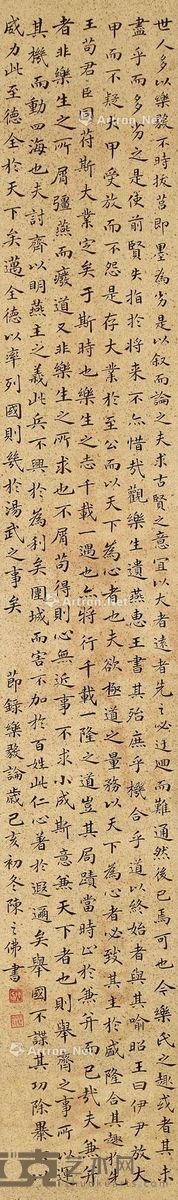 世人多以樂毅不時拔莒即墨為劣是以叙而論之夫求古賢之意宜以大者遠者先之必迂迴而難通然後已焉可也今樂氏之趣或者其未
盡乎而多劣之是使前賢失指於將來不亦惜哉觀樂生遺燕惠王書其殆庶乎機合乎道以終始者與其喻昭王曰伊尹放大
甲而不疑大甲受放而不怨是存大業於至公而以天下為心者也夫欲極道之量務以天下為心者必致其主於盛隆合其趣先
王苟君臣同苻斯大業定矣于斯時也樂生之志千載一遇也亦將行千載一隆之道豈其局蹟當時止於兼并而已哉夫兼并
者非樂生之所屑彊燕而癈道又非樂生之所求也不屑苟得則心無近事不求小成斯意兼天下者也則舉齊之事所以運
其機而動四海也夫討齊以明燕主之義此兵不興於為利矣圍城而害不加於百姓此仁心著於遐邇矣舉國不謀其功除暴
威力此至德全於天下矣邁全德以率列國則幾於湯武之事矣
節錄樂毅論歲己亥初冬陳之佛書